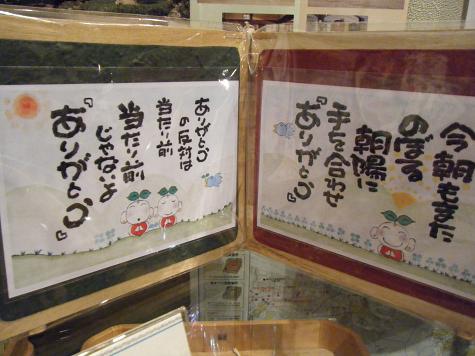 今朝もまた
のぼる
朝陽に
手を合わせ
『ありがとう』
ありがとう
の反対は
当たり前
当たり前
じゃないよ
『ありがとう』